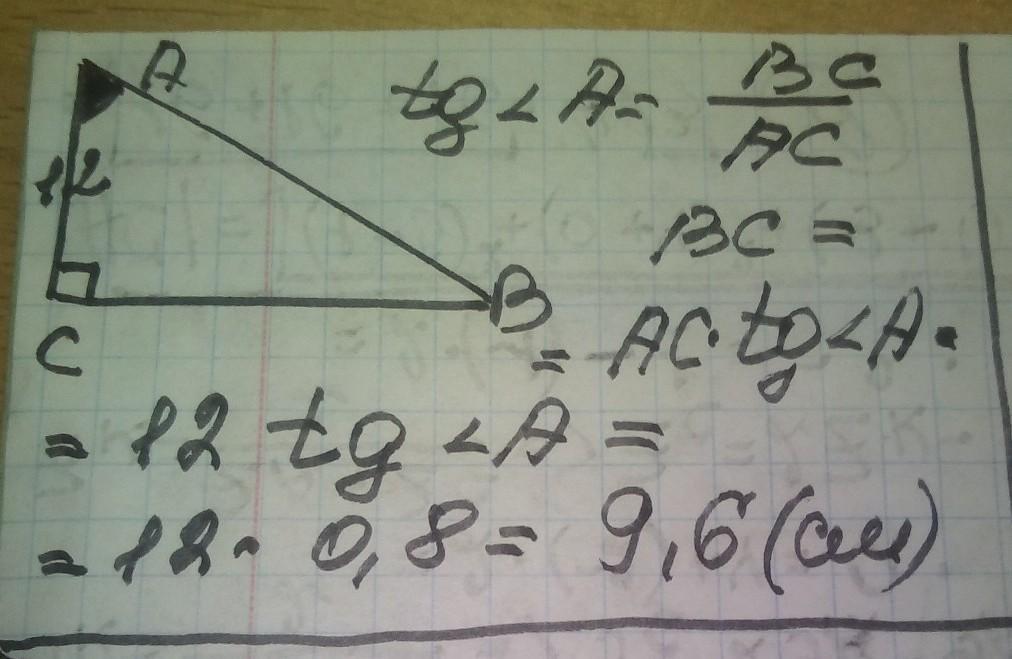 A
12
C
B
tg < A = BC / AC
BC =
= AC · tg < A ·
= 12 tg < A =
= 12 · 0,8 = 9,6 (см)